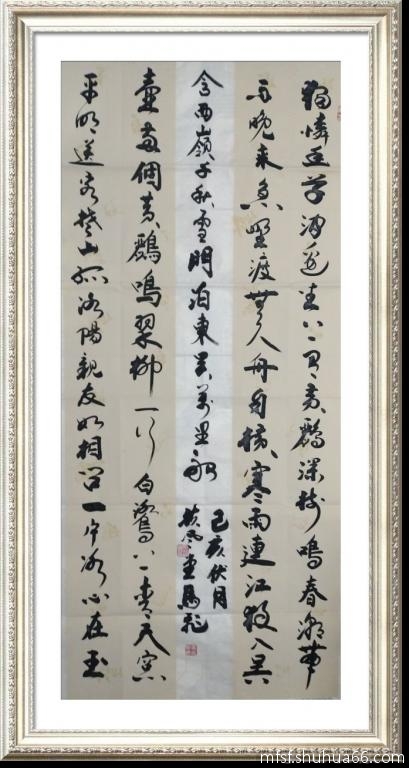 獨憐幽草澗邊生上有黄鸝深樹鳴春潮帶
雨晚來急野渡無人舟自横寒雨連江夜入吴
平明送客楚山孤洛陽親友如相问一片冰心在玉
壺兩個黄鸝鳴翠柳一行白鷺上青天窓
含西嶺千秋雪門泊東吴萬里船
己亥伏月
misf.shuhua66.com